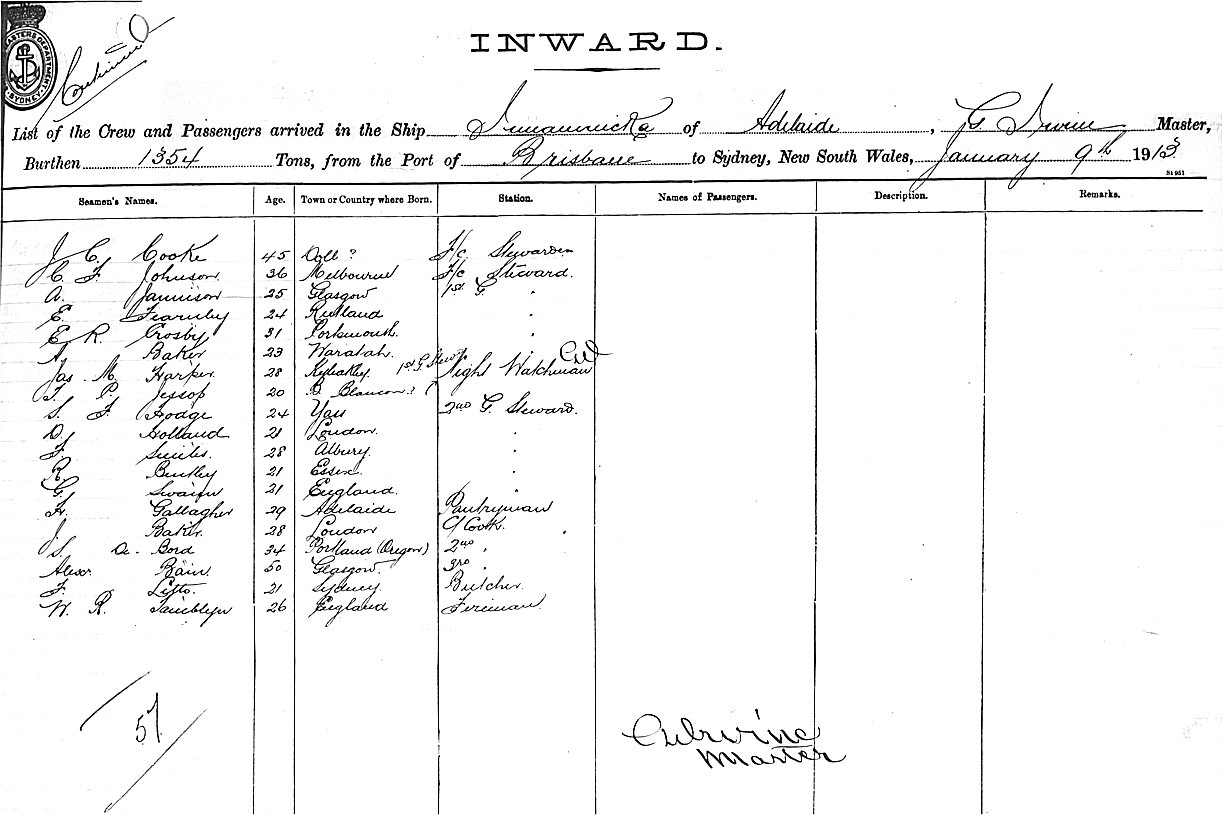 INWARD.
MASTERS DEPARTMENT SYDNEY
Continued
List of the Crew and Passengers arrived in the Ship of Adelaide, G Irvine Master,
Burthen 1354 Tons, from the Port of Brisbane to Sydney, New South Wales, January 9th 1913
St 951
Seamen's Names. Age. Town or Country where Born. Station. Names of Passengers. Description. Remarks.
J. C. Cooke 45 ? F/c.
C. F. Johnson. 36 Melbourne F/c Steward.
A. Jamison 25 Glasgow 1st G. "
E. Fearnley 24 Rutland "
E R. Crosby 31 Portsmouth. "
A. Baker 23 Waratah.
Jas. M. Harper 28 1st G. Stew Night Watchman
F. P. Jessop 20 B. ?
S. F. Hodge 24 Yass 2nd G. Steward.
D. Holland 21 London. "
F. 28 Albury. "
R. Bentley 21 Essex. "
G. Swain 21 England. "
H. Gallagher 29 Adelaide Pantryman
J. Baker. 28 London C/ Cook.
S. A. Bord 34 Portland (Oregon) 2nd "
Alexr Bain. 50 Glasgow. 3rd "
F. Litto. 21 Sydney. Butcher.
W. R. Tamblyn 26 England Fireman.
57
Irvine
Master